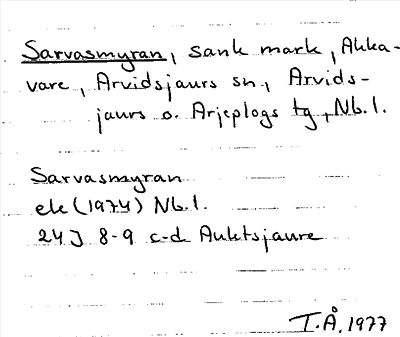 Sarvasmyran, sank mark, Akka-
vare, Arvidsjaurs sn, Arvids-
jaurs o. Arjeplogs tg, Nb. l.
Sarvasmyran
ek (1974) Nb. l.
24J 8-9 c-d Auktsjaure
T.Å. 1977